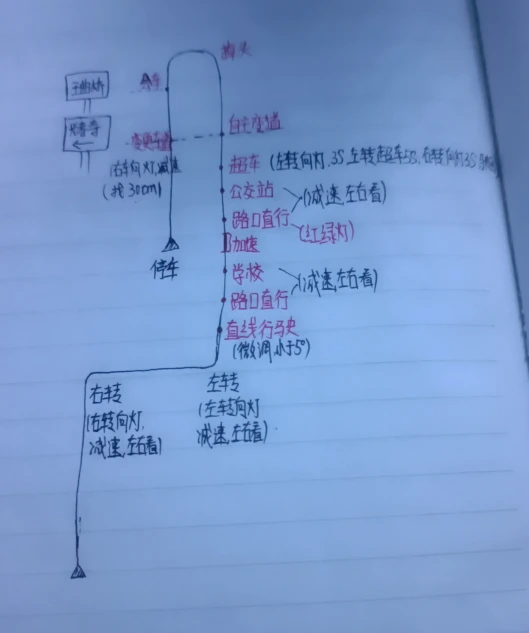 掉头
王曲桥
变更车道
自主变道
右转向灯,减速
(找30cm)
超车 (左转向灯,3S,左转超车5S,右转向灯3S
公交站
(减速,左右看)
路口直行
(红绿灯)
加速
停车
学校
(减速,左右看)
路口直行
直线行驶
(微调小于5°)
右转
(右转向灯,
减速,左右看)
左转
(左转向灯
减速,左右看)